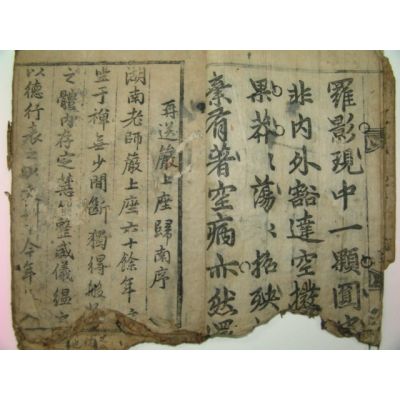 羅影現中一顆圓
非内外豁達空撥
果莽〻蕩〻招殃
棄有著空病亦然還
再送嚴上座歸南序
湖南老師嚴上座六十餘年
坐于禪無少間斷獨得般
之體內存之
威儀
以德行表之
今年